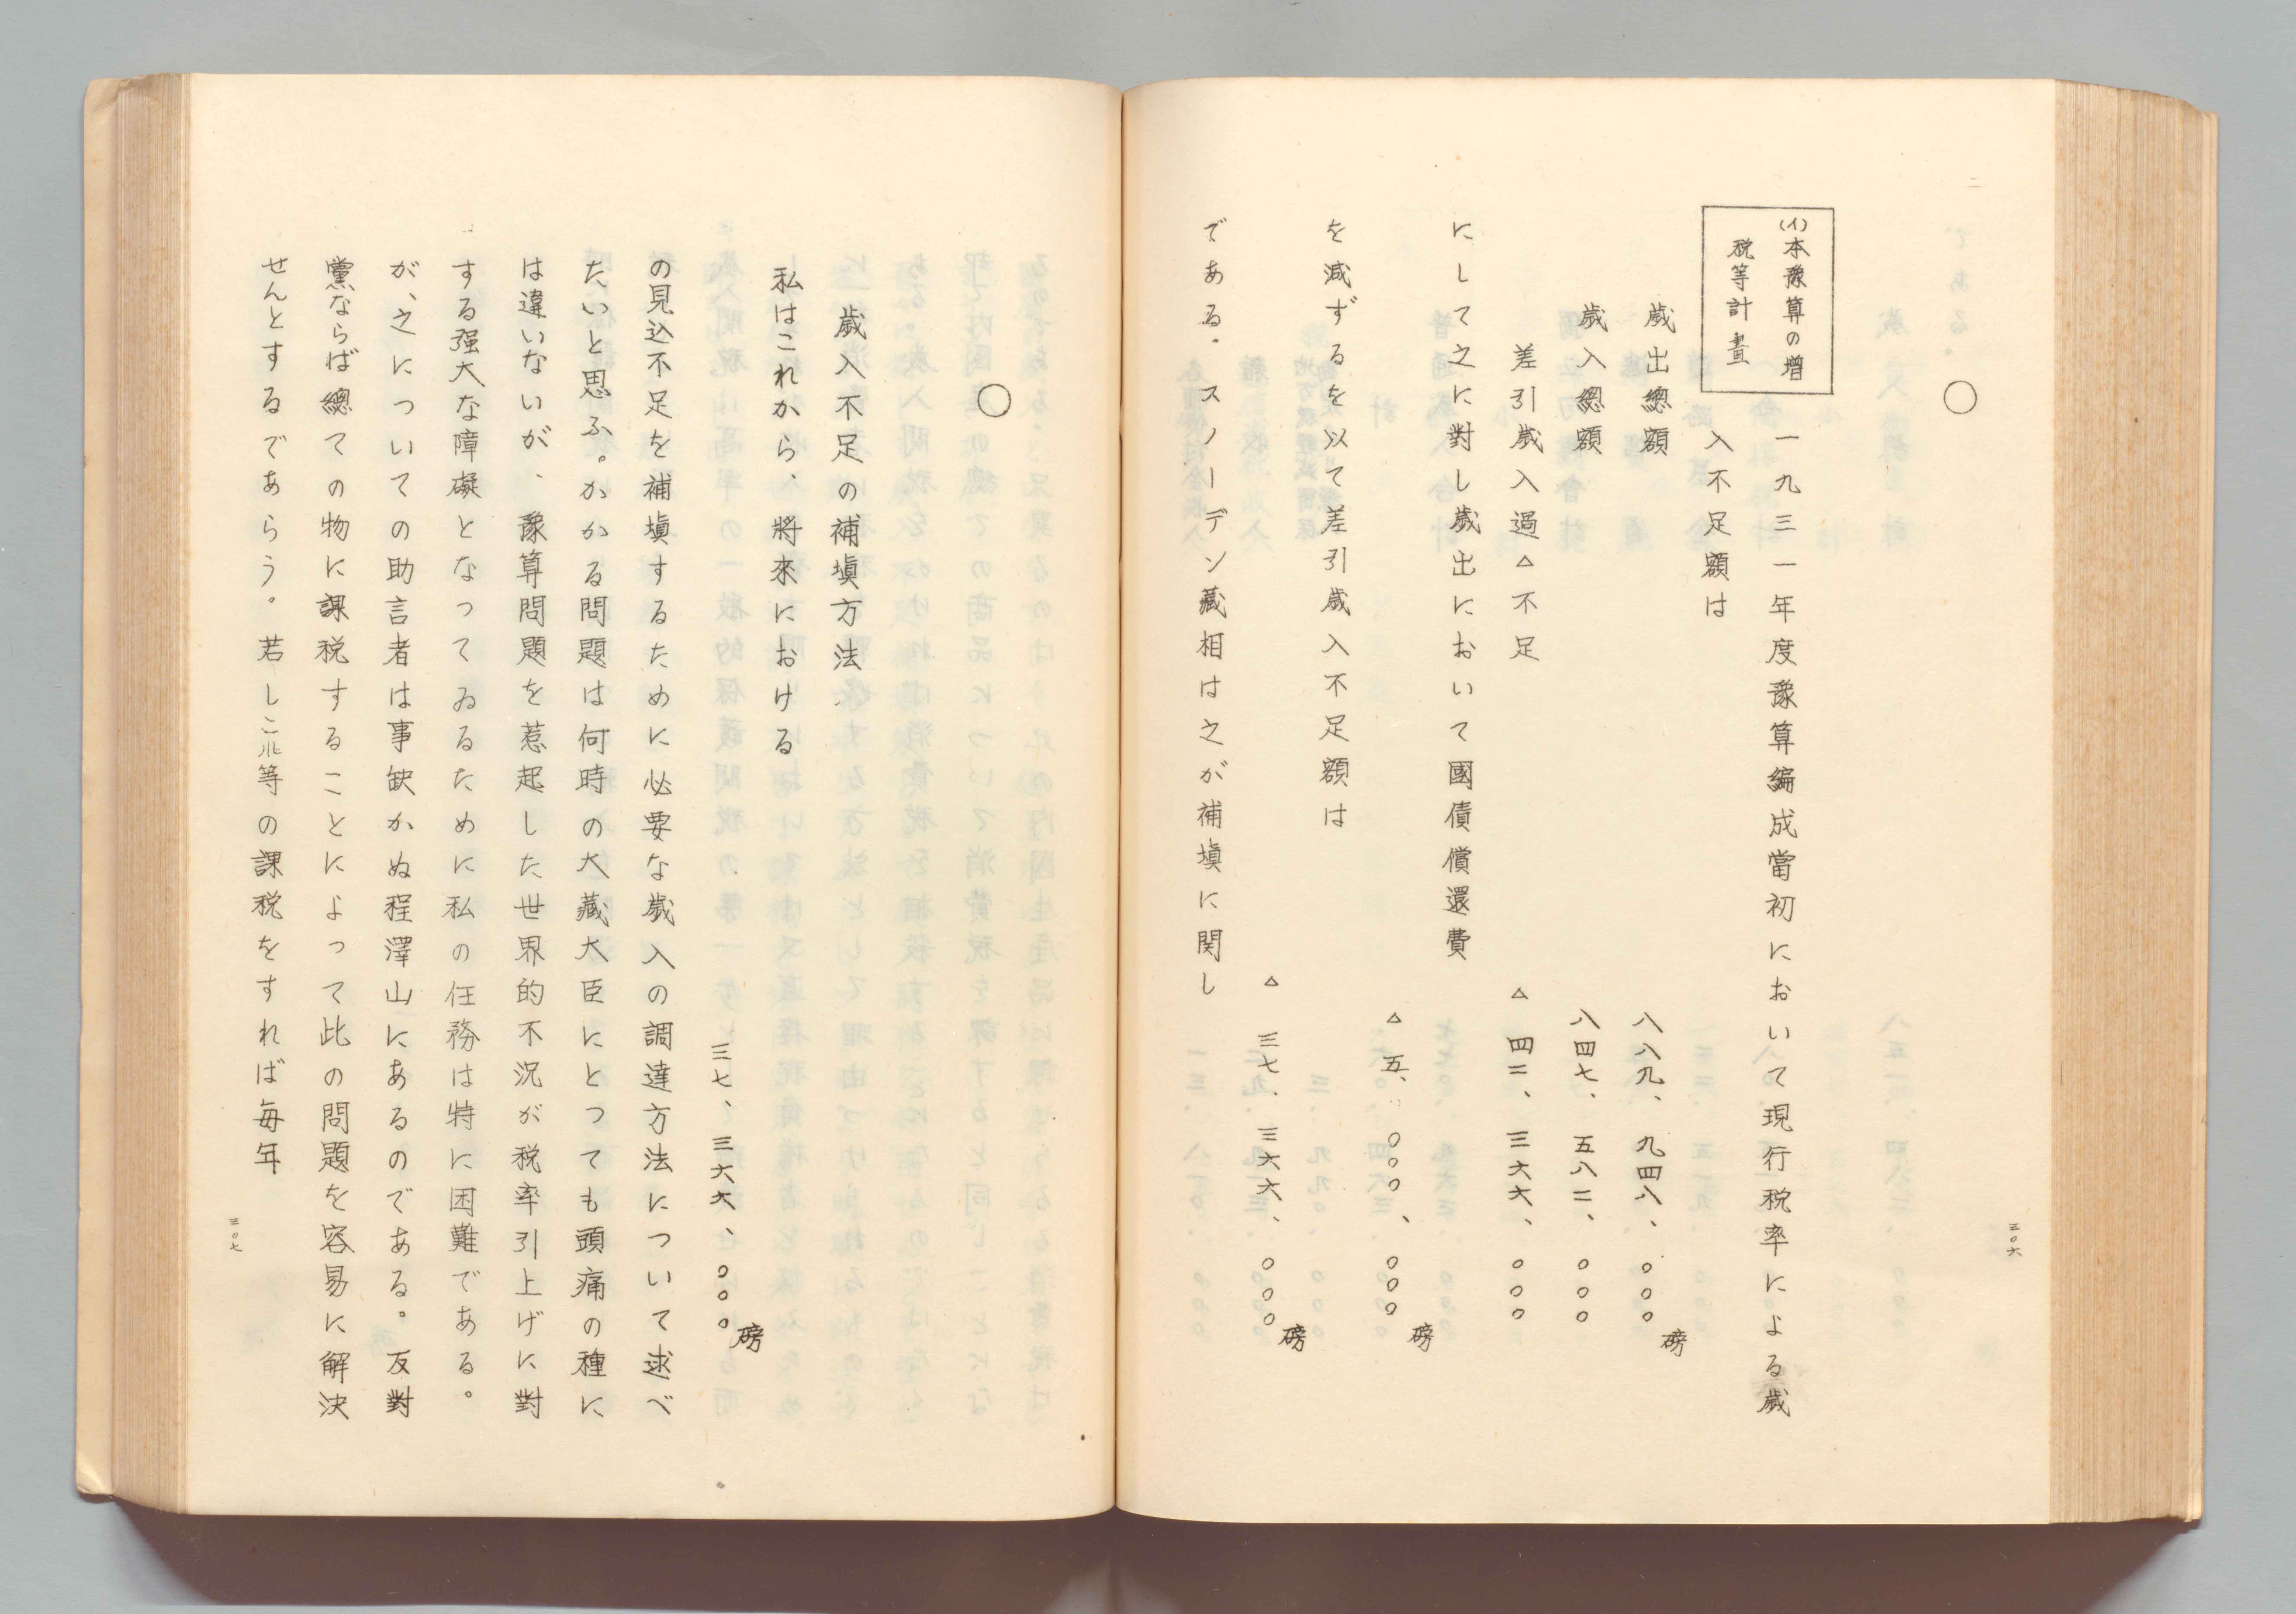 三〇六
○
(イ)本豫算の增
税等計畫
一九三一年度豫算編成當初において現行税率による歲
入不足額は
歲出總額 八八九、九四八、〇〇〇磅
歲入總額 八四七、五八二、〇〇〇
差引歲入過△不足 △四二、三六六、〇〇〇
にして之に對し歲出において國債償還費
△五、〇〇〇、〇〇〇磅
を減ずるを以て差引歲入不足額は
△三七、三六六、〇〇〇磅
である。スノーデン藏相は之が補塡に関し
○
歲入不足の補塡方法
私はこれから、將來における
三七、三六六、〇〇〇磅
の見込不足を補塡するために必要な歲入の調達方法について述べ
たいと思ふ。かかる問題は何時の大藏大臣にとっても頭痛の種に
は違いないが、豫算問題を惹起した世界的不況が税率引上げに對
する强大な障礙となってゐるために私の任務は特に困難である。
が、之についての助言者は事缺かぬ程澤山にあるのである。反對
黨ならば總ての物に課税することによって此の問題を容易に解決
せんとするであらう。若しこれ等の課税をすれば每年
三〇七